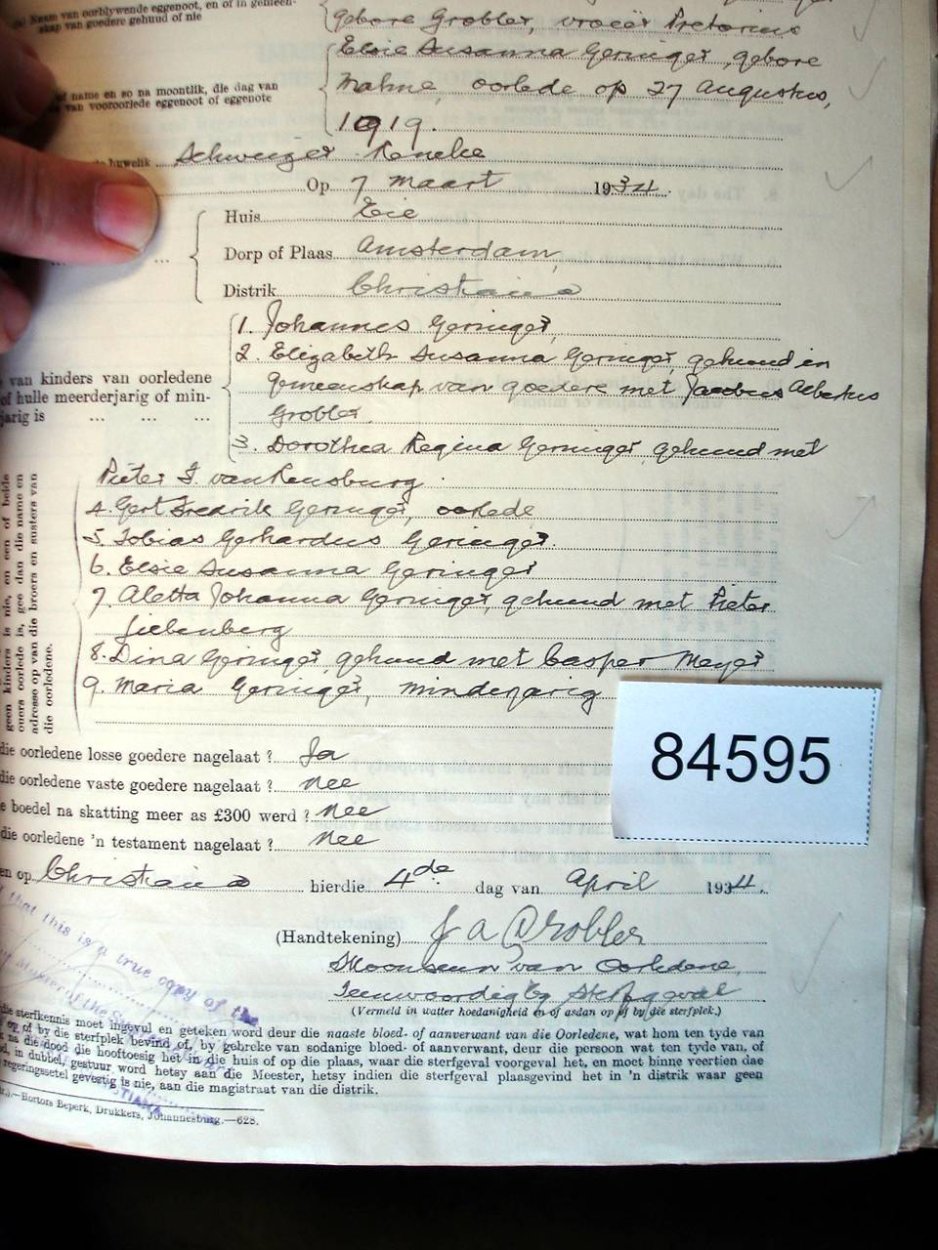 (a) Naam van oorblywende eggenoot, en of in gemeen-
skap van goedere gehuud of nie
gebore Grobler, vroeër Pretorius
Elsie Susanna Geringer, gebore
name en so na moontlik, die dag van
van vooroorlede eggenoot of eggenote
oorlede op 27 Augustus,
1919.
huwelik Schweizer Reneke
Op 7 Maart 1934.
Huis Eie
Dorp of Plaas Amsterdam,
Distrik Christiana
1. Johannes Geringer,
2. Elizabeth Susanna Geringer, gehuud in
van kinders van oorledene
of hulle meerderjarig of min-
jarig is
gemeenskap van goedere met Jacobus Albertus
Grobler
3. Dorothea Regina Geringer gehuud met
Pieter J. van Rensburg
4. Gert Fredrik Geringer, oorlede
5. Tobias Gerhardus Geringer.
6. Elsie Susanna Geringer
7. Aletta Johanna Geringer, gehuud met Pieter
8. Dina Geringer gehuud met Casper Meyer
9. Maria Geringer, minderjarig
geen kinders is nie, en een of beide
ouers oorlede is, gee dan die name en
adresse op van die broers en susters van
die oorledene.
84595
die oorledene losse goedere nagelaat ? Ja
die oorledene vaste goedere nagelaat ? Nee
boedel na skatting meer as £300 werd ? Nee
die oorledene 'n testament nagelaat ? Nee
en op Christiana hierdie 4de dag van April 1934.
that this is a true copy of the
(Handtekening) J A Grobler
Skoonseun van Oorledene,
Teenwoordig by Sterfgeval
(Vermeld in watter hoedanigheid en of asdan op of by die sterfplek.)
die sterfkennis moet ingevul en geteken word deur die naaste bloed- of aanverwant van die Oorledene, wat hom ten tyde van
op of by die sterfplek bevind of, by gebreke van sodanige bloed- of aanverwant, deur die persoon wat ten tyde van, of
na die dood die hooftoesig het in die huis of op die plaas, waar die sterfgeval voorgeval het, en moet binne veertien dae
in dubbel, gestuur word hetsy aan die Meester, hetsy indien die sterfgeval plaasgevind het in 'n distrik waar geen
regeringsetel gevestig is nie, aan die magistraat van die distrik.
Hortors Beperk, Drukkers, Johannesburg.—628.